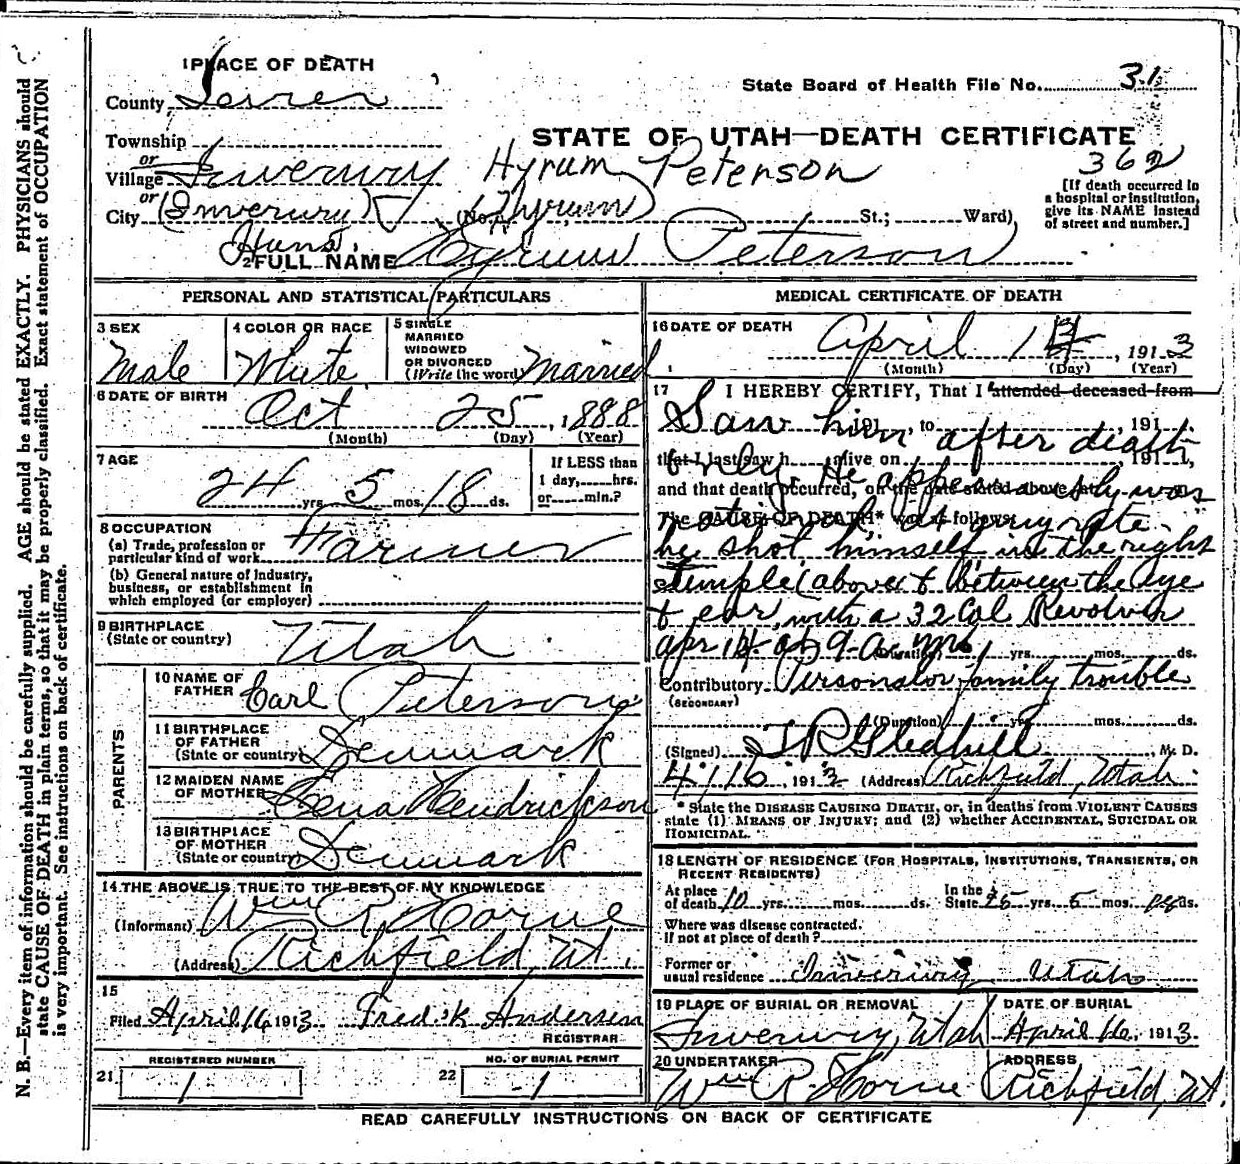 1 PLACE OF DEATH
County Sevier
State Board of Health File No. 31
Township
or
Village Inverury
STATE OF UTAH—DEATH CERTIFICATE
Hyrum Peterson
362
or
City (Inverury) (No. Hyrum) St.; Ward)
[If death occurred in
a hospital or institution,
give its NAME instead
of street and number.]
Hans.
2 FULL NAME Hyrum Peterson
PERSONAL AND STATISTICAL PARTICULARS
3 SEX
Male
4 COLOR OR RACE
White
5 SINGLE
MARRIED
WIDOWED
OR DIVORCED
(Write the word) Married
6 DATE OF BIRTH
Oct 25, 1888
(Month) (Day) (Year)
7 AGE
24 yrs. 5 mos. 18 ds.
If LESS than
1 day, hrs.
or min.?
8 OCCUPATION
(a) Trade, profession or
particular kind of work Farmer
(b) General nature of industry,
business, or establishment in
which employed (or employer)
9 BIRTHPLACE
(State or country) Utah
PARENTS
10 NAME OF
FATHER Carl Peterson
11 BIRTHPLACE
OF FATHER
(State or country) Denmark
12 MAIDEN NAME
OF MOTHER Lena Hendrickson
13 BIRTHPLACE
OF MOTHER
(State or country) Denmark
14 THE ABOVE IS TRUE TO THE BEST OF MY KNOWLEDGE
(Informant) Wm R. Horne
(Address) Richfield, Ut.
15
Filed April 16 1913 Fred.k Andersen
REGISTRAR
REGISTERED NUMBER
21 1
NO. OF BURIAL PERMIT
22 1
MEDICAL CERTIFICATE OF DEATH
16 DATE OF DEATH
April 14, 1913
(Month) (Day) (Year)
17 I HEREBY CERTIFY, That I attended deceased from
191 , to , 191 ,
Saw him after death
that I last saw h alive on , 191 ,
only. He apparently was
and that death occurred, on the date stated above, at m.
The CAUSE OF DEATH* was as follows:
at any rate
he shot himself in the right
temple (above & between the eye
& ear, with a 32 Cal Revolver
Apr 14 at 9 a.m.
(Duration) yrs. mos. ds.
Contributory Personal or family trouble
(SECONDARY)
(Duration) yrs. mos. ds.
(Signed) T R Gledhill M. D.
4/16 1913 (Address) Richfield, Utah.
* State the DISEASE CAUSING DEATH, or, in deaths from VIOLENT CAUSES
state (1) MEANS OF INJURY; and (2) whether ACCIDENTAL, SUICIDAL OR
HOMICIDAL.
18 LENGTH OF RESIDENCE (FOR HOSPITALS, INSTITUTIONS, TRANSIENTS, OR
RECENT RESIDENTS)
At place
of death 10 yrs. mos. ds.
In the
State 25 yrs. 5 mos. ds.
Where was disease contracted.
if not at place of death?
Former or
usual residence Inverury Utah
19 PLACE OF BURIAL OR REMOVAL
Inverury, Utah
DATE OF BURIAL
April 16, 1913
20 UNDERTAKER
Wm R. Horne
ADDRESS
Richfield, Ut.
READ CAREFULLY INSTRUCTIONS ON BACK OF CERTIFICATE
N. B.—Every item of information should be carefully supplied. AGE should be stated EXACTLY. PHYSICIANS should
state CAUSE OF DEATH in plain terms, so that it may be properly classified. Exact statement of OCCUPATION
is very important. See instructions on back of certificate.